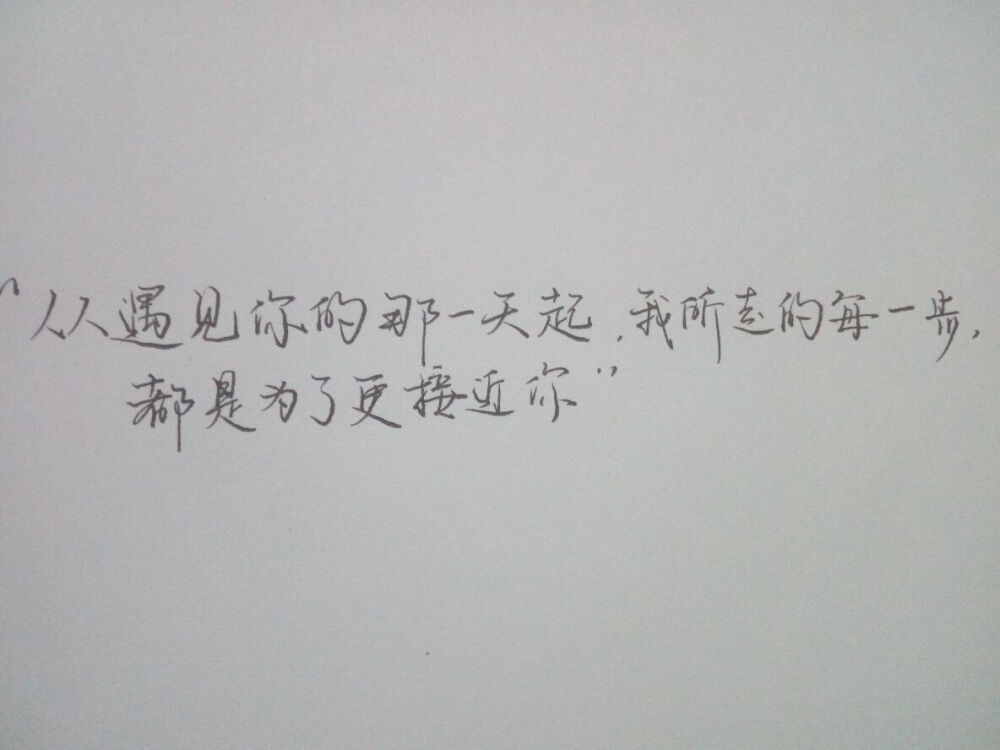 “从遇见你的那一天起,我所走的每一步,
都是为了更接近你”